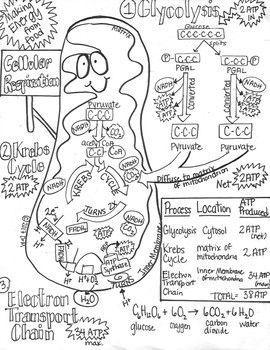 Making
energy
from
food
Cellular
Respiration
① Glycolysis
2 ATP
IN
Glucose
C-C-C-C-C-C
splits
P-C-C-C
PGAL
C-C-C-P
PGAL
NADH
NADH
Converted
Converted
C-C-C
Pyruvate
C-C-C
Pyruvate
Matrix
Pyruvate
C-C-C
NADH
CO₂
acetyl CoA
C-C
CoA
② Krebs
Cycle
2 ATP
KREBS
CYCLE
TURNS 2X
NADH
CO₂
FADH₂
Diffuse to matrix
of mitochondrion
Net
2 ATP
ATP
Synthase
Inner Membrane
H⁺
H₂O
Process Location ATP Produced
Glycolysis Cytosol 2 ATP (net)
Krebs Cycle matrix of mitochondria 2 ATP
Electron Transport Chain Inner Membrane of mitochondria 34 ATP (max)
TOTAL: 38 ATP
③
Electron
Transport
Chain
34 ATP
max
C₆H₁₂O₆ + 6O₂ → 6CO₂ + 6H₂O
glucose oxygen carbon dioxide water